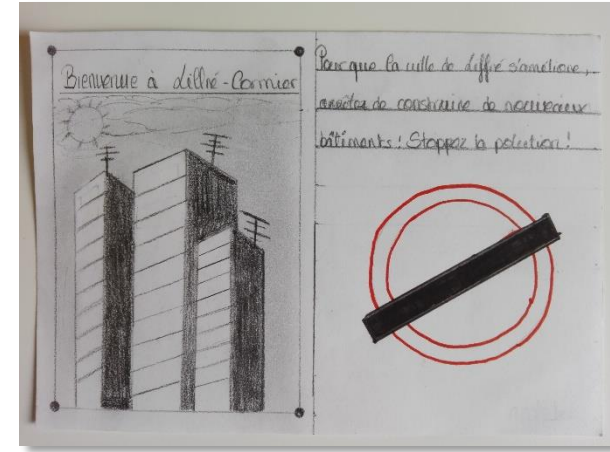 Bienvenue à Liffré-Cormier
Pour que la ville de Liffré s'améliore,
arrêtez de construire de nouveaux
bâtiments! Stoppez la polution!